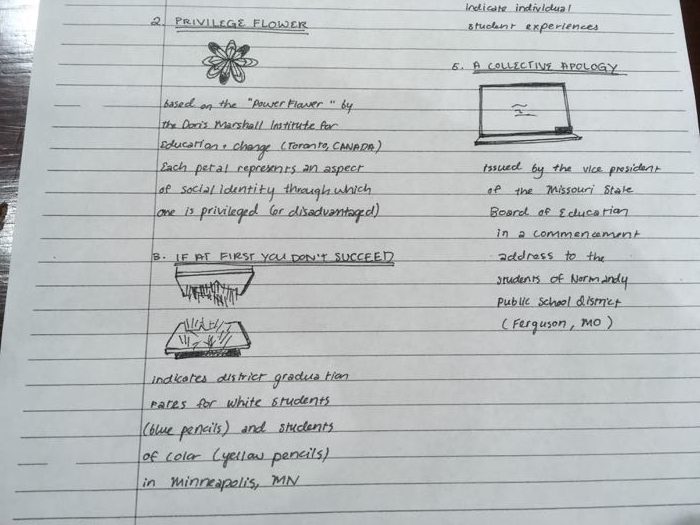 2. PRIVILEGE FLOWER
based on the "Power Flower" by
the Doris Marshall Institute for
Education + change (Toronto, CANADA)
Each petal represents an aspect
of social identity through which
one is privileged (or disadvantaged)
3. IF AT FIRST YOU DON'T SUCCEED
indicates district graduation
rates for white students
(blue pencils) and students
of color (yellow pencils)
in Minneapolis, MN
indicate individual
student experiences
5. A COLLECTIVE APOLOGY
issued by the vice president
of the Missouri State
Board of Education
in a commencement
address to the
students of Normandy
Public School District
(Ferguson, MO)